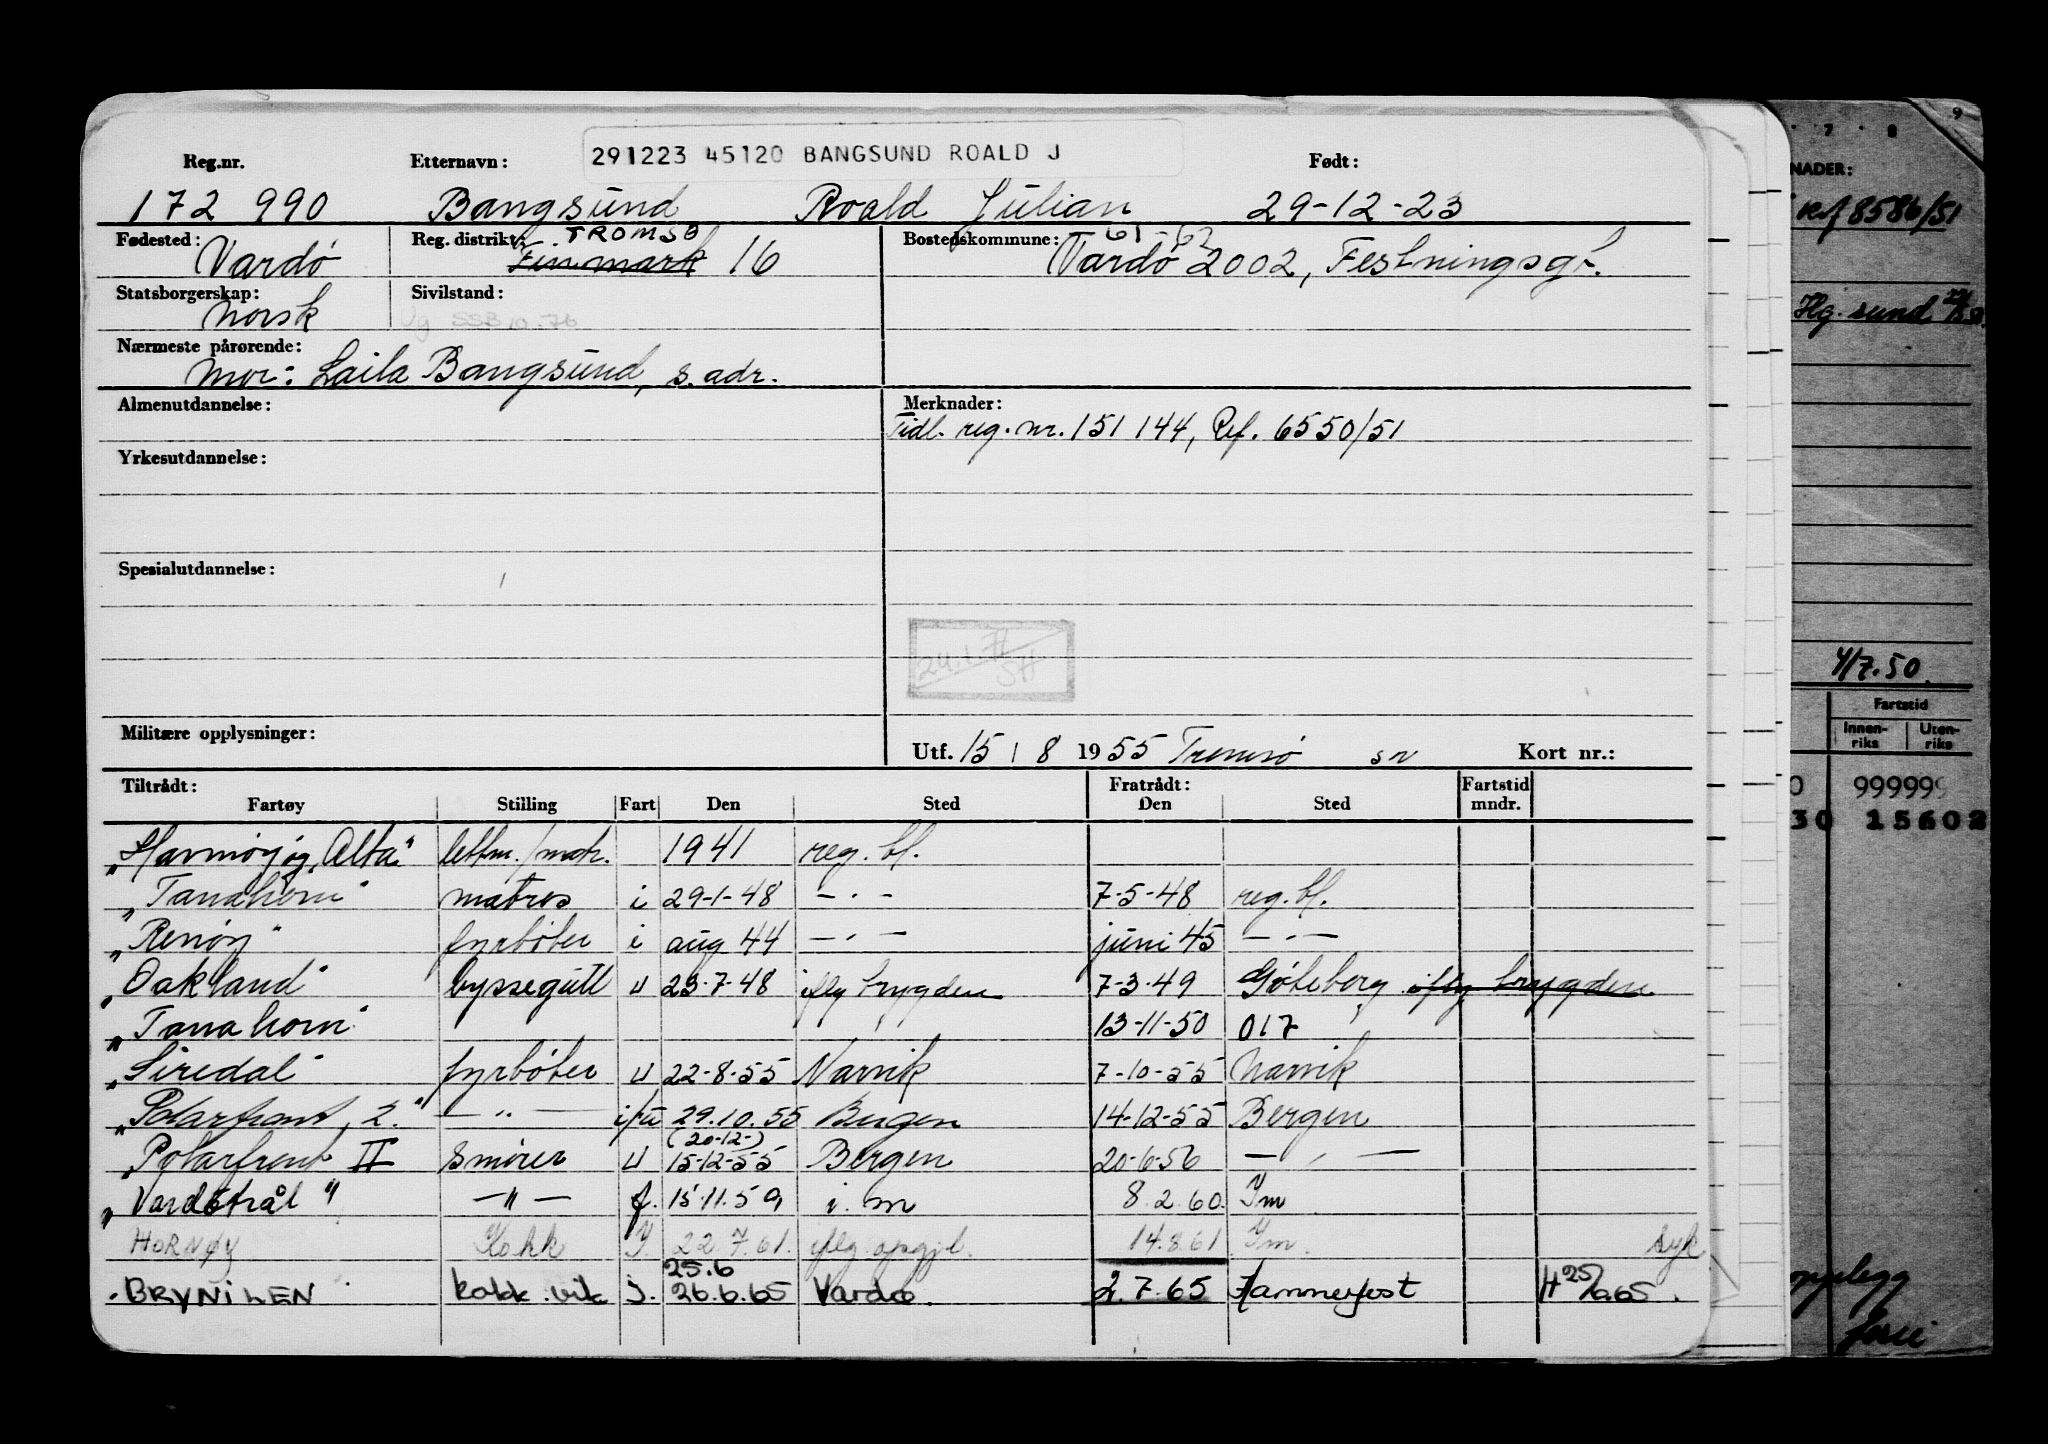 291223 45120 BANGSUND ROALD J
Reg.nr. Etternavn: Født:
172 990 Bangsund Roald Julian 29-12-23
Fødested: Vardø Reg. distrikt: TROMSØ Finnmark 16 Bostedskommune: Vardø 2002, Festningsgt.
Statsborgerskap: Norsk Sivilstand:
SSB 10.76
Nærmeste pårørende:
Mor: Laila Bangsund, s. adr.
Almenutdannelse: Merknader:
Tidl. reg. nr. 151 144, Ref. 6550/51
Yrkesutdannelse:
Spesialutdannelse:
SH
Militære opplysninger: Utf. 15 / 8 1955 Tromsø Kort nr.:
Tiltrådt: Fratrådt: Fartstid
Fartøy Stilling Fart Den Sted Den Sted mndr.
"Havnøy og Alta" lettm./matr. 1941 reg. bl.
"Tanahorn" matros i 29-1-48 - . - 7-5-48 reg. bl.
"Renøy" fyrbøter i aug 44 - . - juni 45 - . -
"Oakland" byssegutt u 23-7-48 iflg brygden 7-3-49 Göteborg iflg brygden
"Tanahorn" 13-11-50 017
"Siredal" fyrbøter u 22-8-55 Narvik 7-10-55 Narvik
"Polarfront 2." - " - i/u 29.10.55 Bergen 14-12-55 Bergen
(20-12-)
"Polarfront II smører u 15-12-55 Bergen 20-6-56 - , -
"Vardøtrål" - " - f. 15.11.59 i. m 8.2.60. Im
HORNØY Kokk I. 22.7.61. iflg. oppgj. 14.8.61 Im. syk
25.6
BRYNILEN kokk.vik I. 26.6.65 Vardø. 2.7.65 Hammerfest H 25/6.65.
7 8 9
NADER:
Ref 8586/51
Hg. sund
4/7.50
Fartstid
Innen-riks Uten-riks
0 999999
30 15602